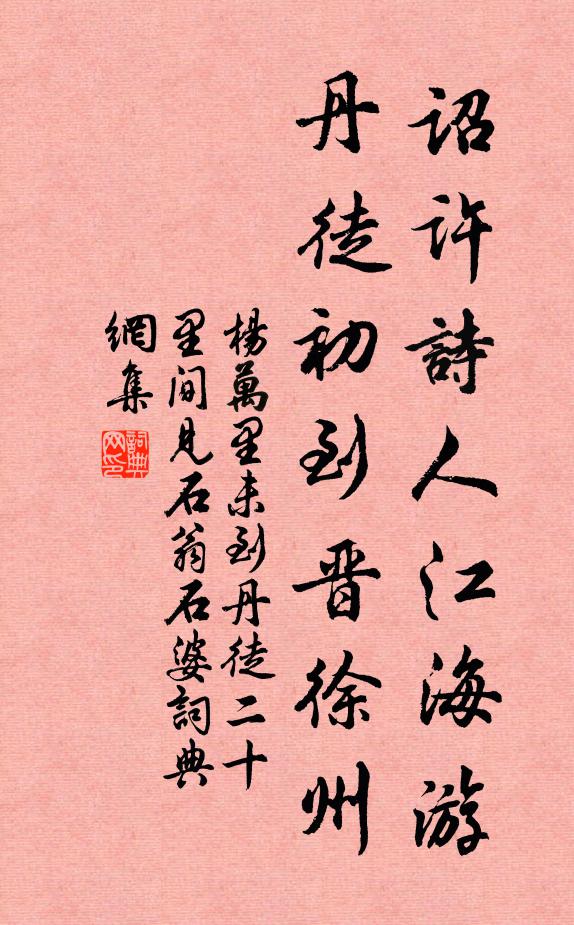 詔許詩人江海游
丹徒初到晋徐州
楊萬里未到丹徒二十
里間見石翁石婆詞典
網集
詞典
网印